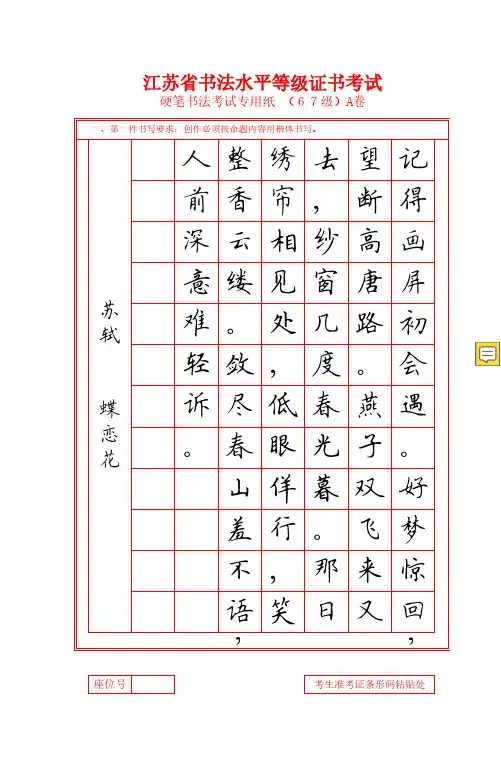 江苏省书法水平等级证书考试
硬笔书法考试专用纸 (67级)A卷
一、第一件书写要求:创作必须按命题内容用楷体书写。
记得画屏初会遇。好梦惊回,
望断高唐路。燕子双飞来又
去,纱窗几度春光暮。那日
绣帘相见处,低眼佯行,笑
整香云缕。敛尽春山羞不语,
人前深意难轻诉。
苏轼 蝶恋花
座位号
考生准考证条形码粘贴处